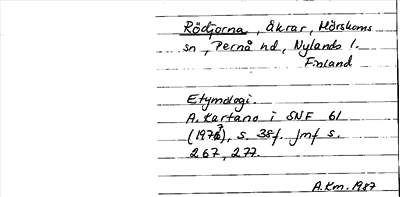 Rödjorna, åkrar, Mörskoms
sn, Pernå hd, Nylands l.
Finland
Etymologi.
A. Kartano i SNF 61
(1977), s. 38f. Jmf s.
267, 277.
A.Km. 1987